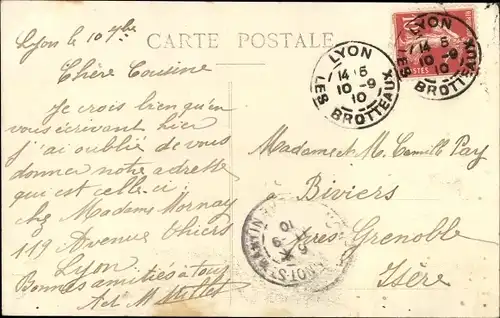 CARTE POSTALE
Lyon le 10 7bre
Chère Cousine
Je crois bien qu'en
vous écrivant hier
j'ai oublié de vous
donner notre adresse
qui est celle-ci
chez Madame Mornay
119 Avenue Thiers
Lyon
Bonnes amitiés à tous
Ad. M Millet
LYON
14 5
10 -9
10
LES BROTTEAUX
LYON
14 5
10 -9
10
LES BROTTEAUX
10
POSTES
Madame M. Camille Pay
à Biviers
près Grenoble
Isère